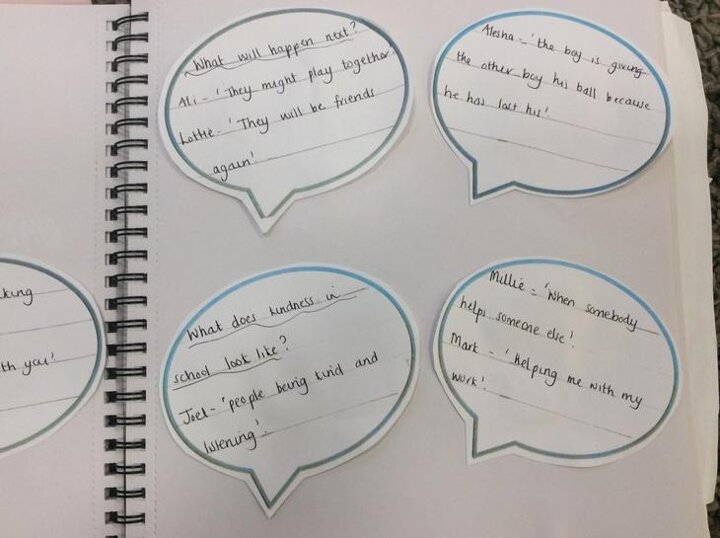 What will happen next?
Ali - 'They might play together'
Lottie - 'They will be friends
again'
Alesha - 'the boy is giving
the other boy his ball because
he has lost his'.
What does kindness in
school look like?
Joel - 'people being kind and
listening'.
Millie - 'When somebody
helps someone else'.
Mark - 'helping me with my
work'.
th you'